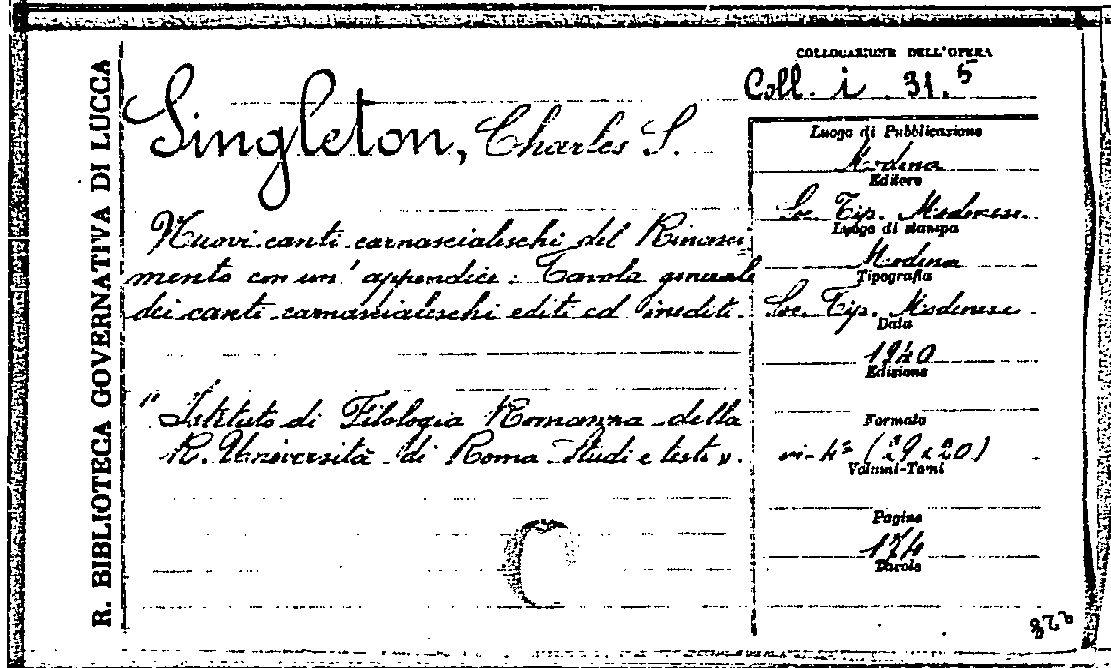 R. BIBLIOTECA GOVERNATIVA DI LUCCA
COLLOCAZIONE DELL'OPERA
Coll. i 31.5
Singleton, Charles S.
Nuovi canti carnascialeschi del Rinasci
mento con un' appendice: Tavola generale
dei canti carnascialeschi editi ed inediti.
"Istituto di Filologia Romanza della
R. Università di Roma Studi e testi".
Luogo di Pubblicazione
Modena
Editore
Soc. Tip. Modenese
Luogo di stampa
Modena
Tipografia
Soc. Tip. Modenese
Data
1940
Edizione
Formato
in-4° (29x20)
Volumi-Tomi
Pagine
174
Tavole